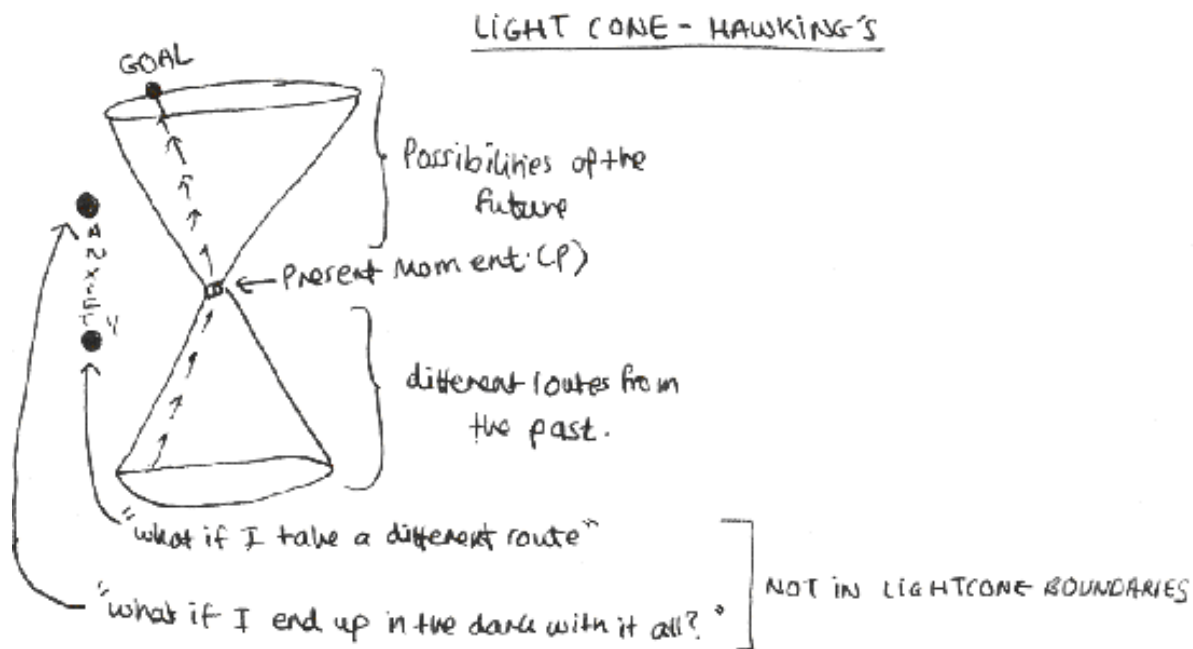 LIGHT CONE - HAWKING'S
GOAL
Possibilities of the
future
Present Moment (P)
ANXIETY
different routes from
the past.
"what if I take a different route"
"what if I end up in the dark with it all?"
NOT IN LIGHTCONE BOUNDARIES